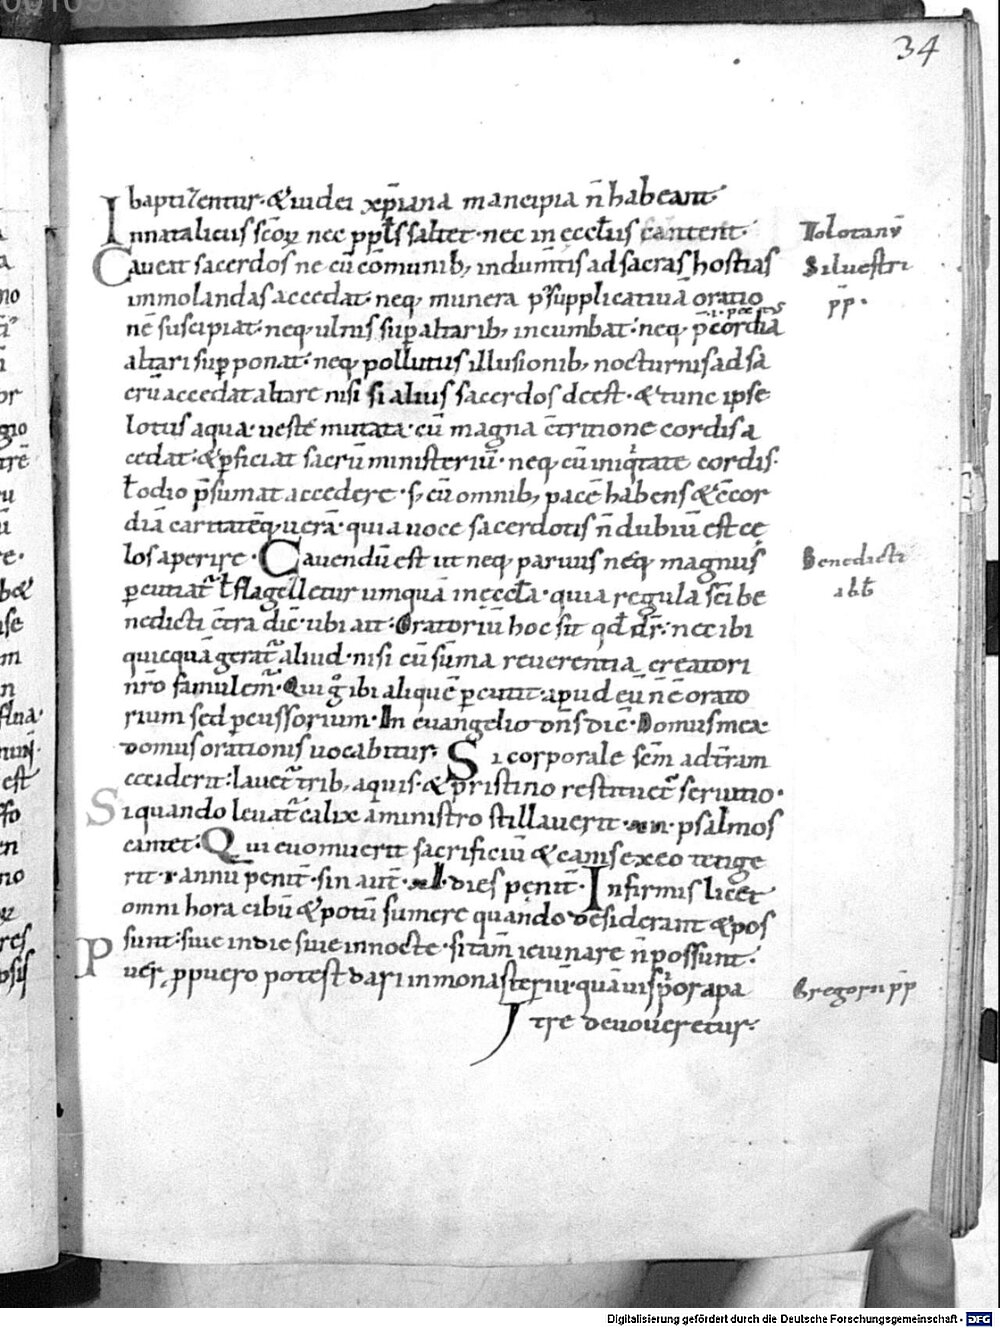 34
baptizentur· & iudei xp̄iana mancipia n̄ habeant·
Innatalicus sc̄oꝝ nec ppl̄s saltet· nec in eccl̄iis cantent· Tolotanū
Caueat sacerdos ne cū cōmunib; indum̄tis ad sacras hostias Siluestri
immolandas accedat· neq; munera p̄ supplicatiuā oratio pp̄·
nē suscipiat· neq; ulnis sup altarib; incumbat· neq; p̄cordia
altari sup ponat· neq; pollutus illusionib; nocturnis ad sa
crū accedat altare nisi si alius sacerdos deest· & tunc ipse
lotus aqua· uestē mutata· cū magna c̄tritione cordis a
cedat· & p̱ficiat sacrū ministeriū· neq; cū iniq̇tate cordis·
ł odio p̄sumat accedere· s; cū omnib; pacē habens & c̄cor
diā caritatēq; uerā· quia uoce sacerdotis n̄ dubiū est cę
los aperire· Cauendū est ut neq; paruus neq; magnus Benedicti
percutiat᷑ ł flagelletur umquā in eccl̄a· quia regula sc̄i be abb̄
nedicti c̄tra dic̄· ubi ait· Oratoriū hoc sit qđ dr̄· nec ibi
quicquā gerat᷑ aliud· nisi cū sūma reuerentia creatori
nr̄o famulem̄· Qui gͦ ibi aliquē percutit· apud eū n̄ ē orato
rium sed percussorium· In euangelio dn̄s dic̄· Domus mea
domus orationis uocabitur· Si corporale sem̄ ad tr̄ram
ceciderit· lauet᷑ trib; aquis· & pristino restituet᷑ scrinio·
Si quando leuat᷑ calix a ministro stillauerit· xxx· psalmos
cantet· Qui euomuerit sacrificiū & canis ex eo tenge
rit· i· annū penit̄· sin aut̄· xl· dies penit̄· Infirmis licet
omni hora cibū & potū sumere quando desiderant & pos
sunt· siue in die siue in nocte· si tam̄ ieiunare n̄ possunt·
Puer, pp uero potest dari in monasteriū· quāuis prior a pa Gregorii pp̄
tre deuoueretur·
Digitalisierung gefördert durch die Deutsche Forschungsgemeinschaft - DFG